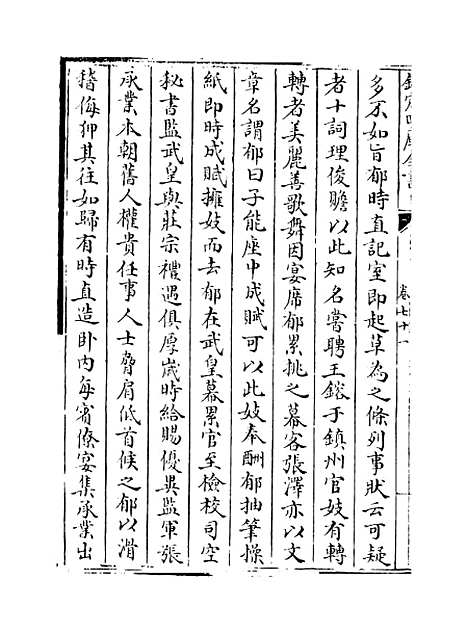 欽定四庫全書
卷七十一
多不如旨郁時直記室即起草為之條列事狀云可疑
者十詞理俊贍以此知名嘗聘王鎔于鎮州官妓有轉
轉者美麗善歌舞因宴席郁累挑之幕客張澤亦以文
章名謂郁曰子能座中成賦可以此妓奉酬郁抽筆操
紙即時成賦擁妓而去郁在武皇幕累官至檢校司空
秘書監武皇與莊宗禮遇俱厚歲時給賜優異監軍張
承業本朝舊人權貴任事人士脅肩低首候之郁以滑
稽侮狎其往如歸有時直造卧内每賓僚宴集承業出